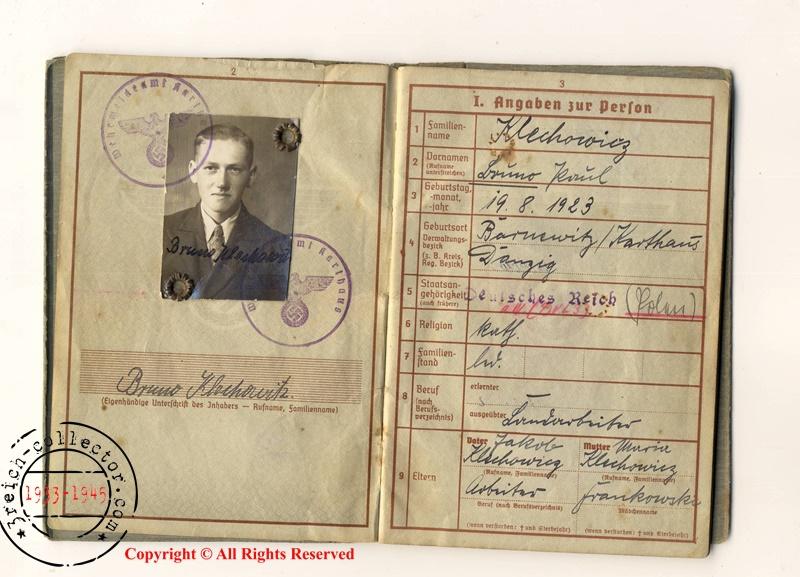 2
Wehrmeldeamt Karthaus
Bruno Klechowitz
Wehrmeldeamt Karthaus
Bruno Klechowitz
(Eigenhändige Unterschrift des Inhabers — Rufname, Familienname)
3
I. Angaben zur Person
1 Familien-
name
Klechowicz
2 Vornamen
(Rufname
unterstreichen)
Bruno Paul
3 Geburtstag,
-monat,
-jahr
19. 8. 1923
4 Geburtsort
Verwaltungs-
bezirk
(z. B. Kreis,
Reg. Bezirk)
Barnewitz/Karthaus
Danzig
5 Staatsan-
gehörigkeit
(auch frühere)
Deutsches Reich (Polen)
6 Religion
kath.
7 Familien-
stand
led.
8 Beruf
(nach
Berufs-
verzeichnis)
erlernter
ausgeübter Landarbeiter
9 Eltern
Vater Jakob
Klechowicz
(Rufname, Familienname)
Arbeiter
Beruf (nach Berufsverzeichnis)
(wenn verstorben: † und Sterbejahr)
Mutter Marie
Klechowicz
(Rufname, Familienname)
Frankowski
Mädchenname
(wenn verstorben: † und Sterbejahr)
3reich-collector.com
1933-1945
Copyright © All Rights Reserved